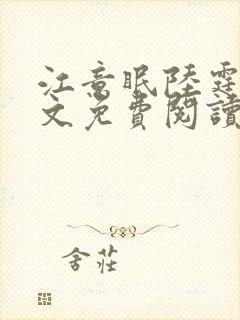 江意眠陸霆
文免費閱讀
舍莊